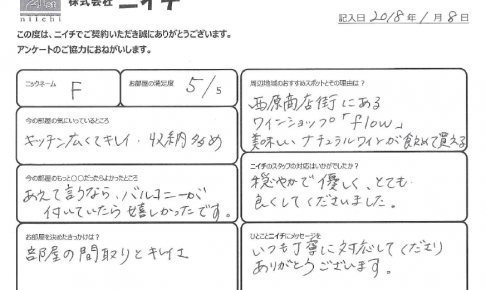 niichi
株式会社ニイチ
記入日 2018年 1月 8日
この度は、ニイチでご契約いただき誠にありがとうございます。
アンケートのご協力におねがいします。
ニックネーム
F
お部屋の満足度
5/5
今の部屋の気にいっているところ
キッチン広くてキレイ・収納多め
今の部屋のもっと○○だったらよかったところ
あえて言うなら、バルコニーが
付いていたら嬉しかったです。
お部屋を決めたきっかけは？
部屋の間取りとキレイさ
周辺地域のおすすめスポットとその理由は？
西原商店街にある
ワインショップ「flow」
美味しいナチュラルワインが飲めて買える
ニイチのスタッフの対応はいかがでしたか？
穏やかで優しく、とても
良くしてくださいました。
ひとことニイチにメッセージを
いつも丁寧に対応してくださり
ありがとうございます。